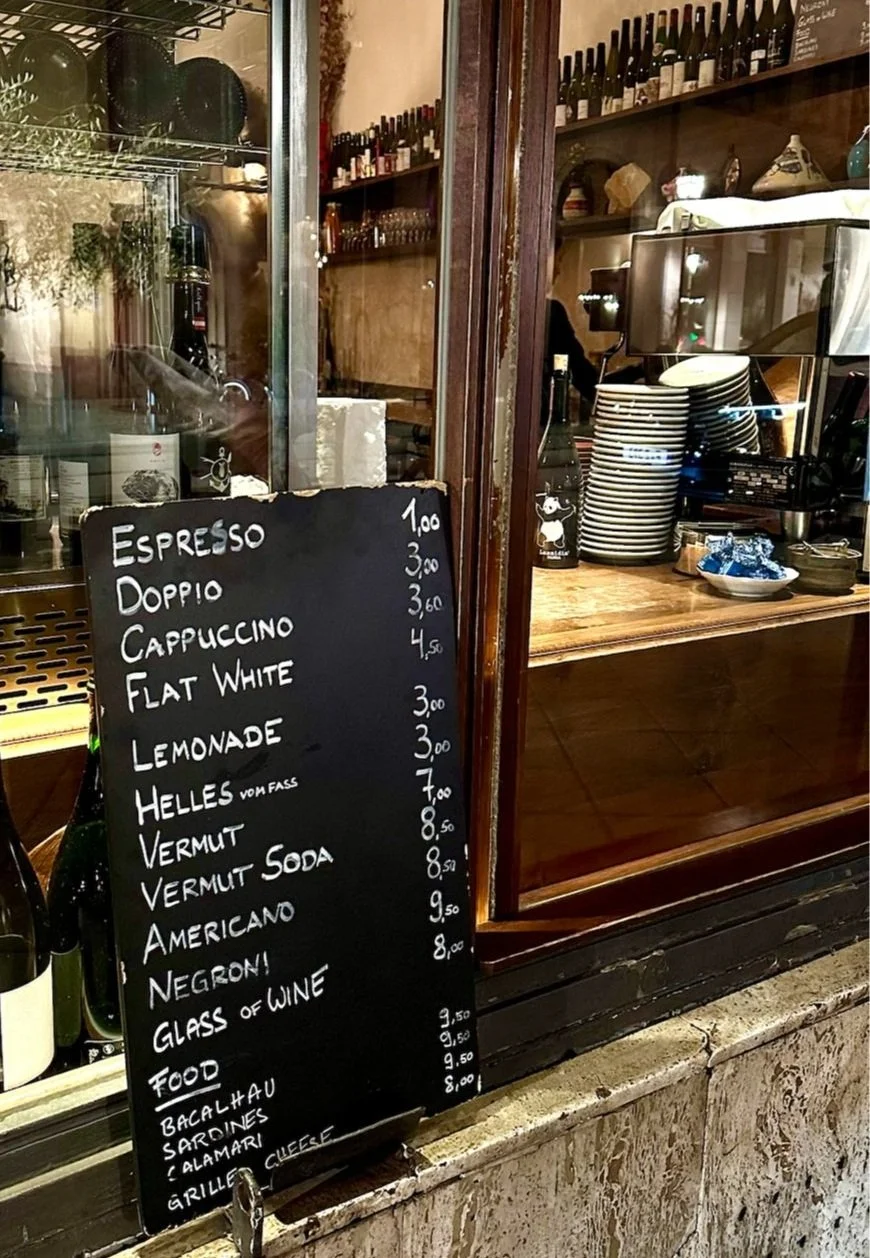 NEGRONI
GLASS OF WINE
FOOD
ESPRESSO 1,00
DOPPIO 3,00
CAPPUCCINO 3,60
FLAT WHITE 4,50
LEMONADE 3,00
HELLES VOM FASS 3,00
VERMUT 7,00
VERMUT SODA 8,50
AMERICANO 8,50
NEGRONI 9,50
GLASS OF WINE 8,00
FOOD
BACALHAU 9,50
SARDINES 9,50
CALAMARI 9,50
GRILLED CHEESE 8,00